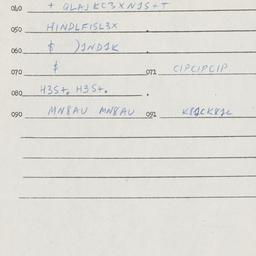 040 + QLAJKC3XN1S+T
050 HINDLFISL3X
060 $ )1ND1K
070 $ 071 CIPCIPCIP
080 H3S+. H3S+.
090 MN8AU MN8AU 091 K81CK81C